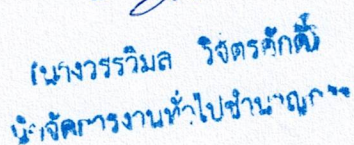 (นางวรรวิมล วิจิตรศักดิ์
นักจัดการงานทั่วไปชำนาญการ